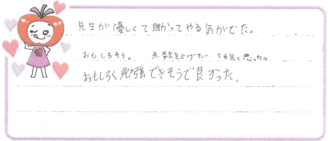 先生が優しくて助かってやるきがでた。
おもしろそう。 点数を上げたいとも思ったの。
おもしろく勉強できそうで良かった。